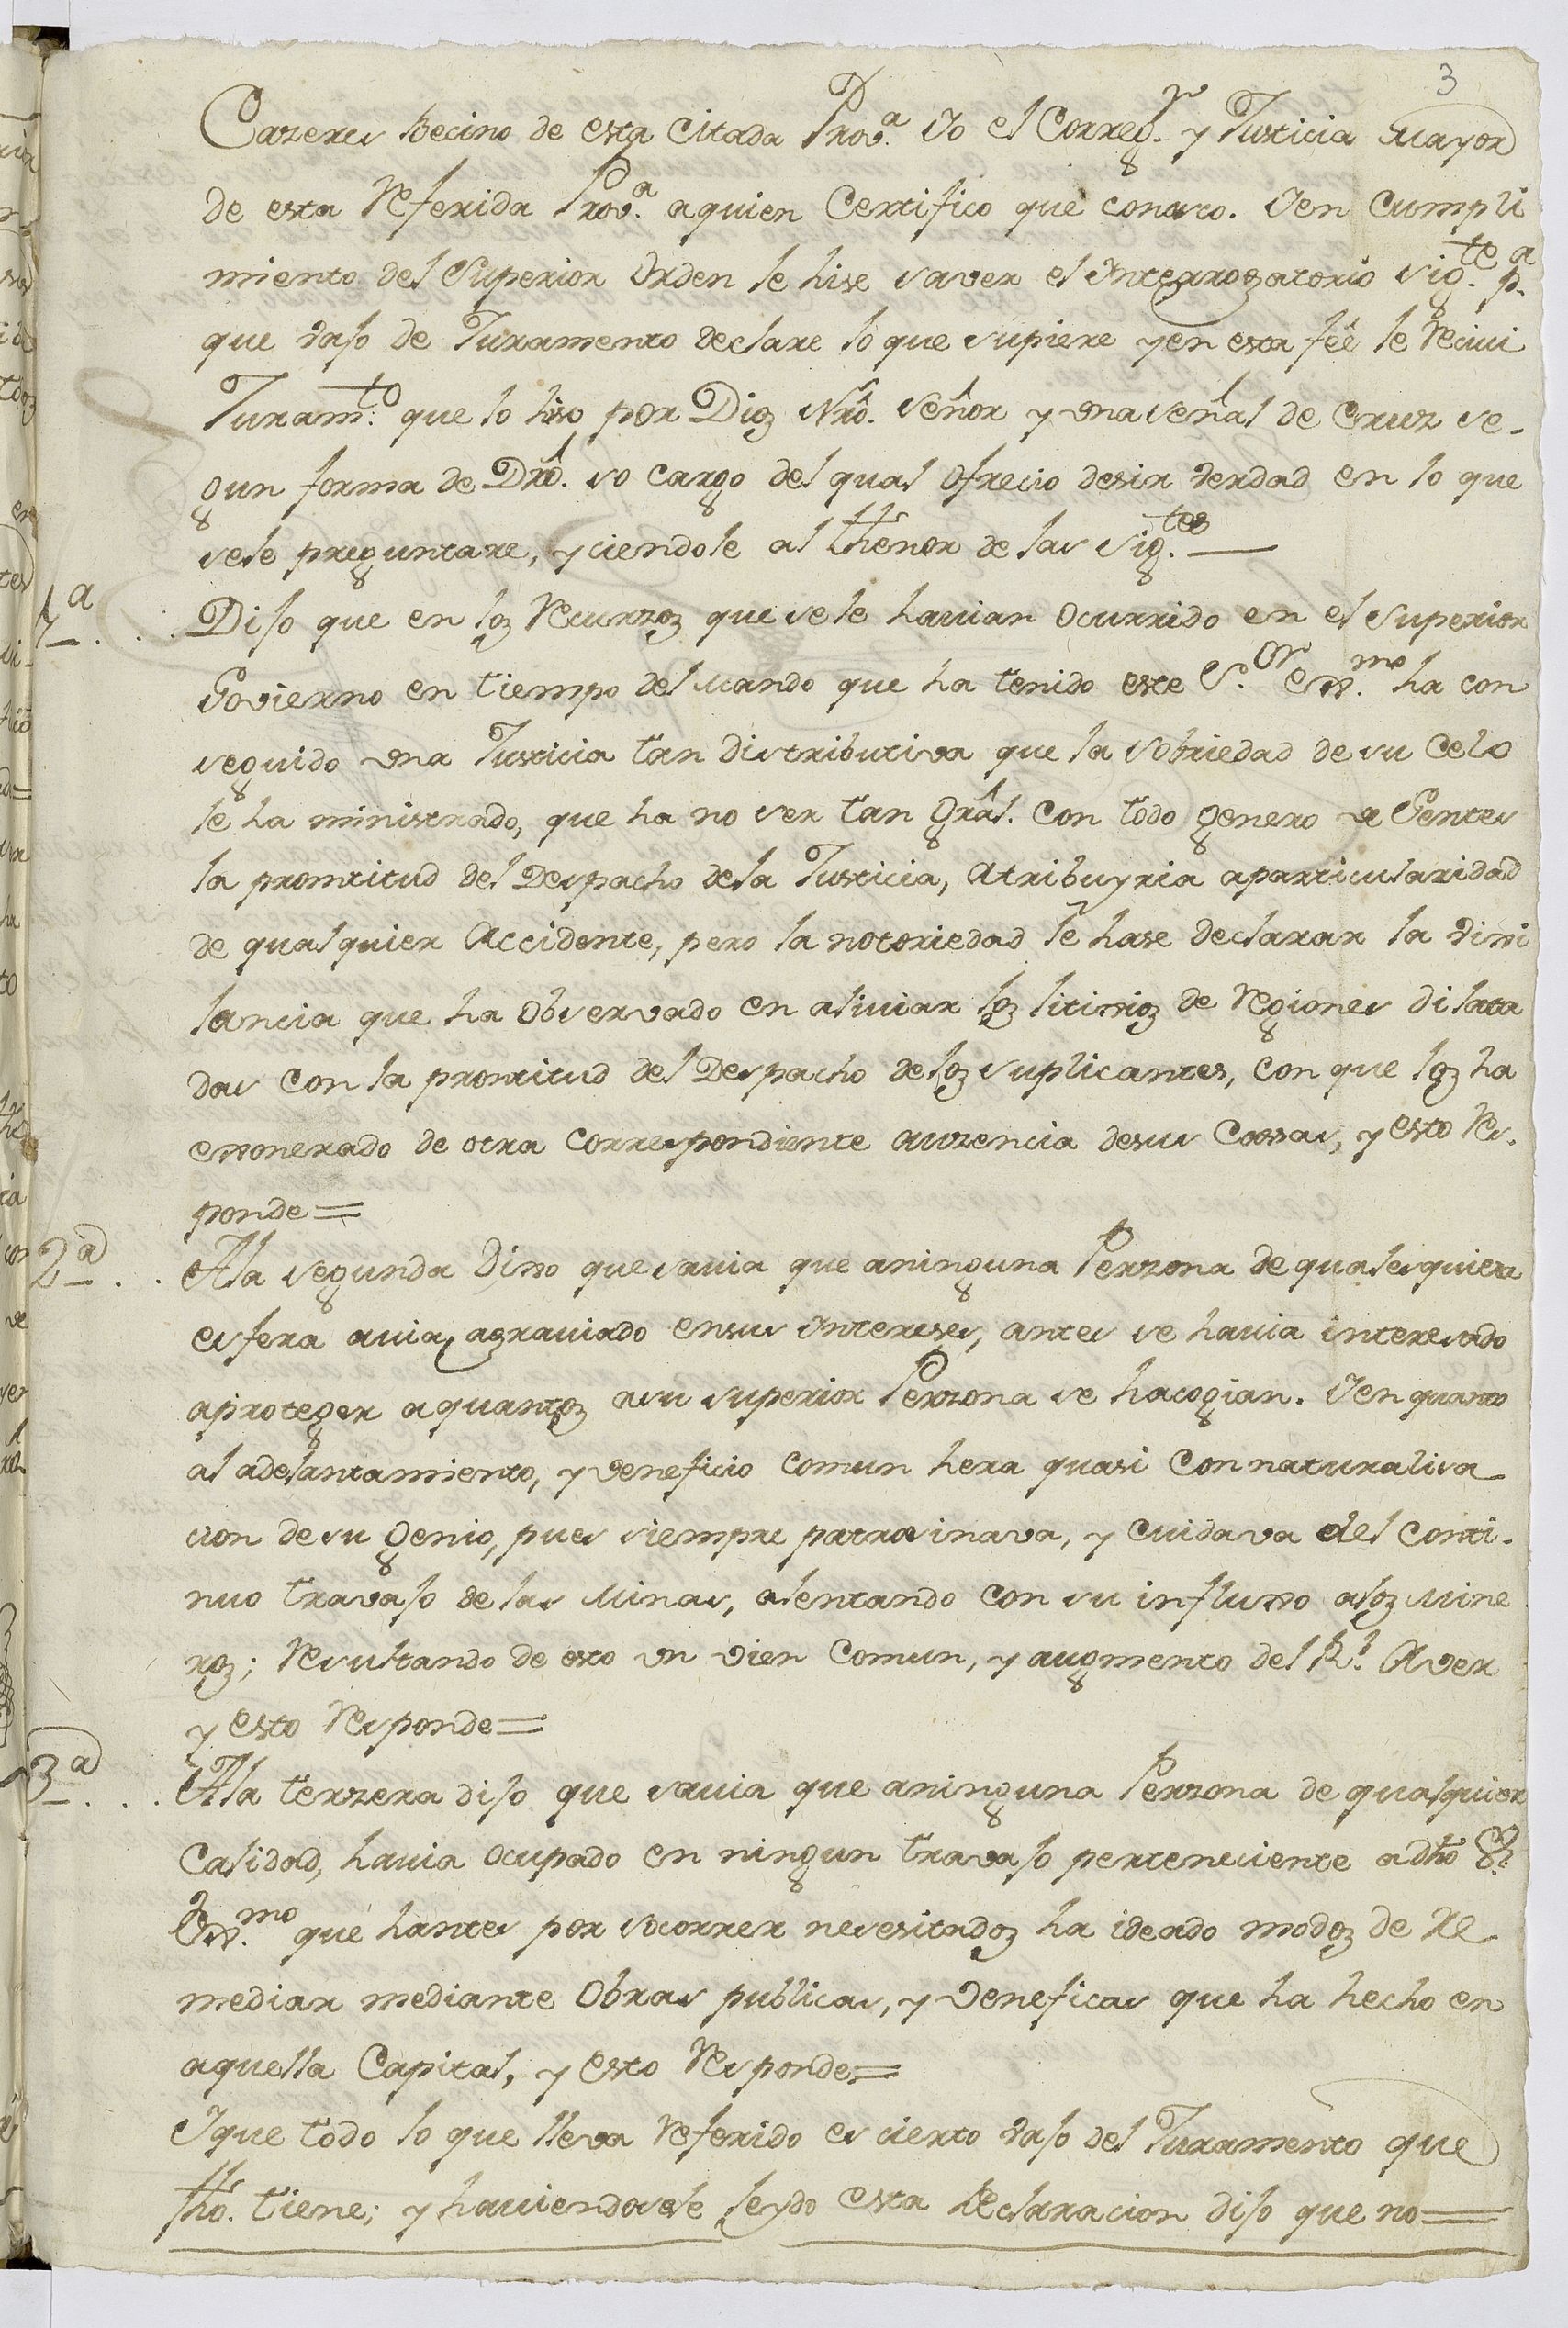 3
Cazeres Vecino de esta Citada Prov.ª Yo el Correg.r y Justicia mayor
de esta Referida Prov.ª aquien Certifico que conosco. Yen Cumpli
miento del Superior Orden le hise saver el Ynterrogatorio sig.te p.ª
que vajo de Juramento declare lo que supiere yen esta feè le Recivi
Juram.to que lo hiso por Dios Nrô. Señor y una señal de Cruz se-
gun forma de Drô. so cargo del qual ofrecio desir verdad en lo que
sele preguntare, y ciendole al thenor de las sig.tes —
1ª . . . Dijo que en los Recurzos que sele havian ocurrido en el Superior
Govierno en tiempo del Mando que ha tenido este S.or Exx.mo ha con
seguido una Justicia tan distributiva que la sobriedad de su Celo
le ha ministrado, que ha no ser tan Grâl. con todo genero de Gentes
la promtitud del Despacho dela Justicia, Atribuyria aparticularidad
de qualquier Accidente, pero la notoriedad le hase declarar la vixi
lancia que ha Observado en aliviar los litixios de Regiones dilata
das con la promtitud del Despacho delos suplicantes, con que los ha
exonerado de otra correspondiente auzencia desus Cassas, y esto Res-
ponde =
2ª . . Ala segunda Dixo que savia que aninguna Perzona de qualesquiera
esfera avia, agraviado ensus Ynterezes, antes se havia interesado
aproteger aquantos asu superior Perzona se hacogian. Yen quanto
al adelantamiento, y veneficio comun hera quasi connaturalisa
cion de su genio, pues siempre patrosinava, y Cuidava del conti-
nuo travajo de las Minas, alentando con su influxo alos Mine
ros; Resultando de esto un vien Comun, y augmento del R.l Aver
y esto Responde =
3ª . . . Ala terzera dijo que savia que aninguna Perzona de qualquier
Calidad, havia ocupado en ningun travajo perteneciente adho S.r
Exx.mo que hantes por socorrer nesesitados ha ideado modos de Re
mediar mediante Obras publicas, y Veneficas que ha hecho en
aquella Capital, y esto Responde =
Yque todo lo que lleva Referido es cierto vajo del Juramento que
fhô. tiene; y haviendosele leydo esta Declaracion dijo que no =